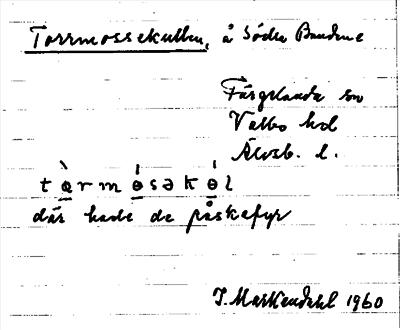 Torrmossekullen, å Södra Bundene
Färgelanda sn
Valbo hd
Älvsb. l.
tàrmɵ́səkɵ́l
där hade de påskafyr
J. Markendahl 1960